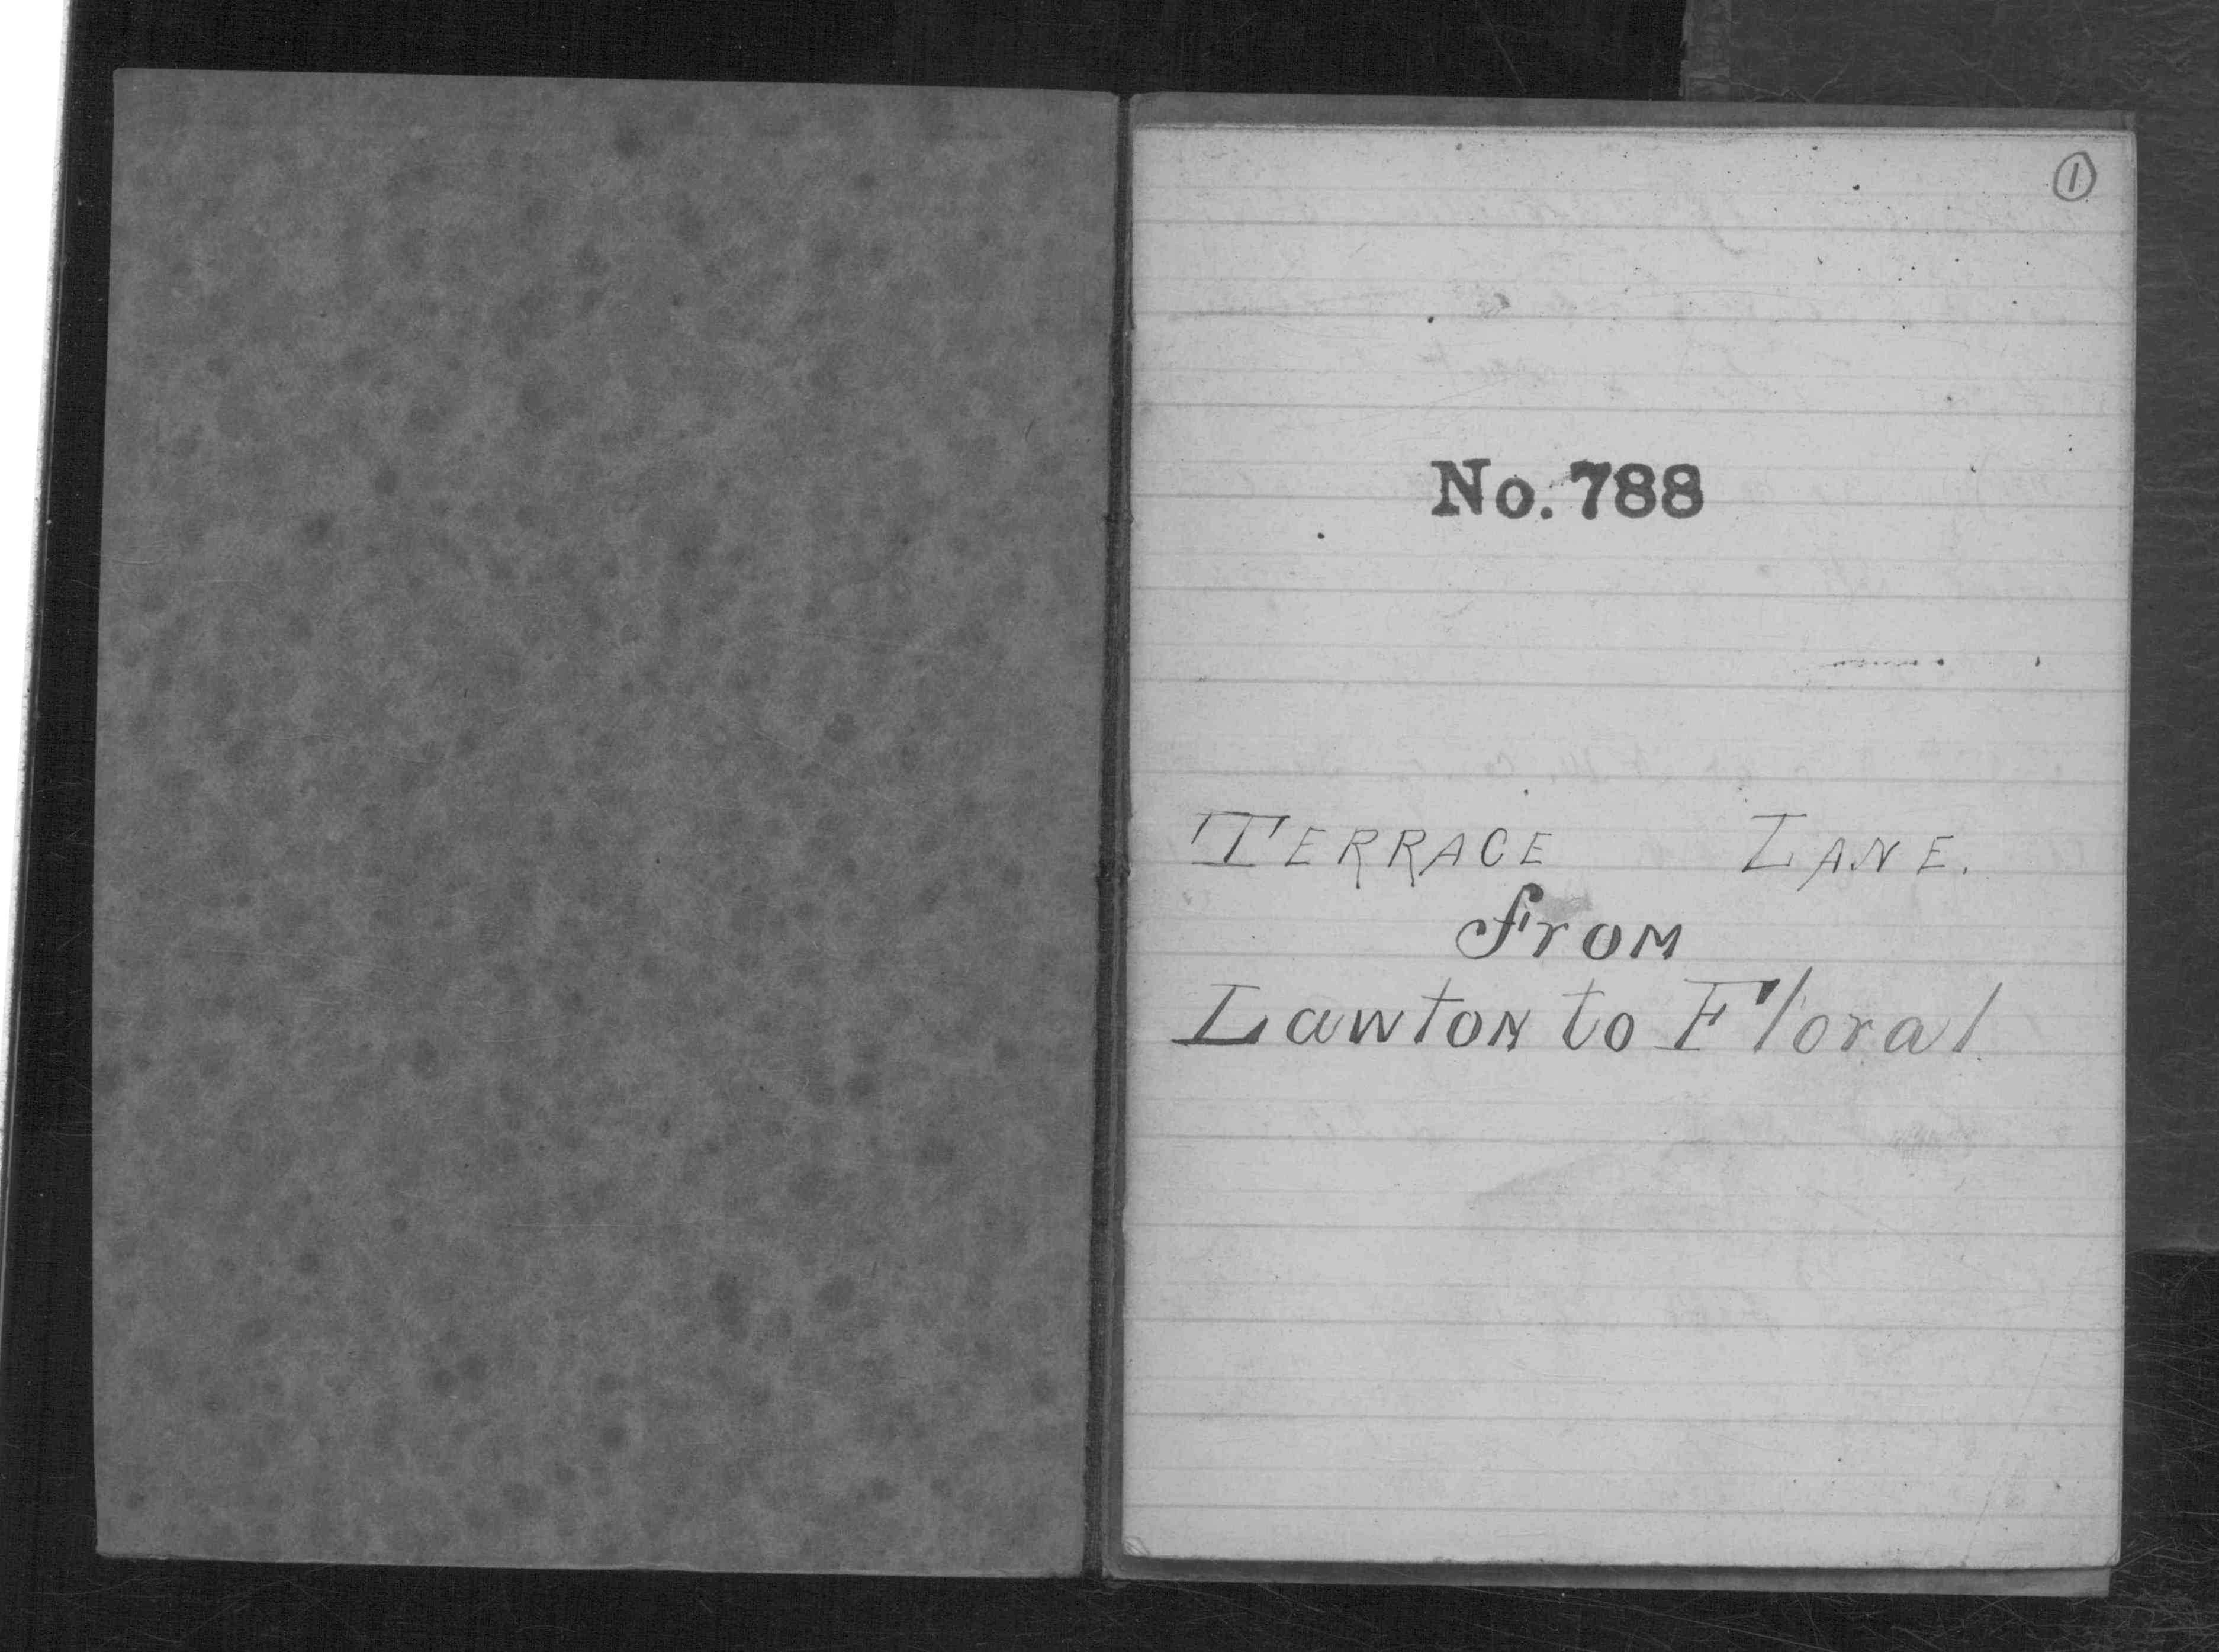 1
No. 788
TERRACE LANE.
From
Lawton to Floral